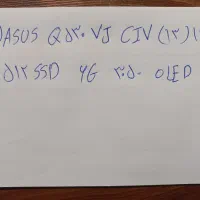 ASUS Q۵۳۰ VJ CIV (۱۳)
۵۱۲ SSD ۶G ۳۰۵۰ OLED